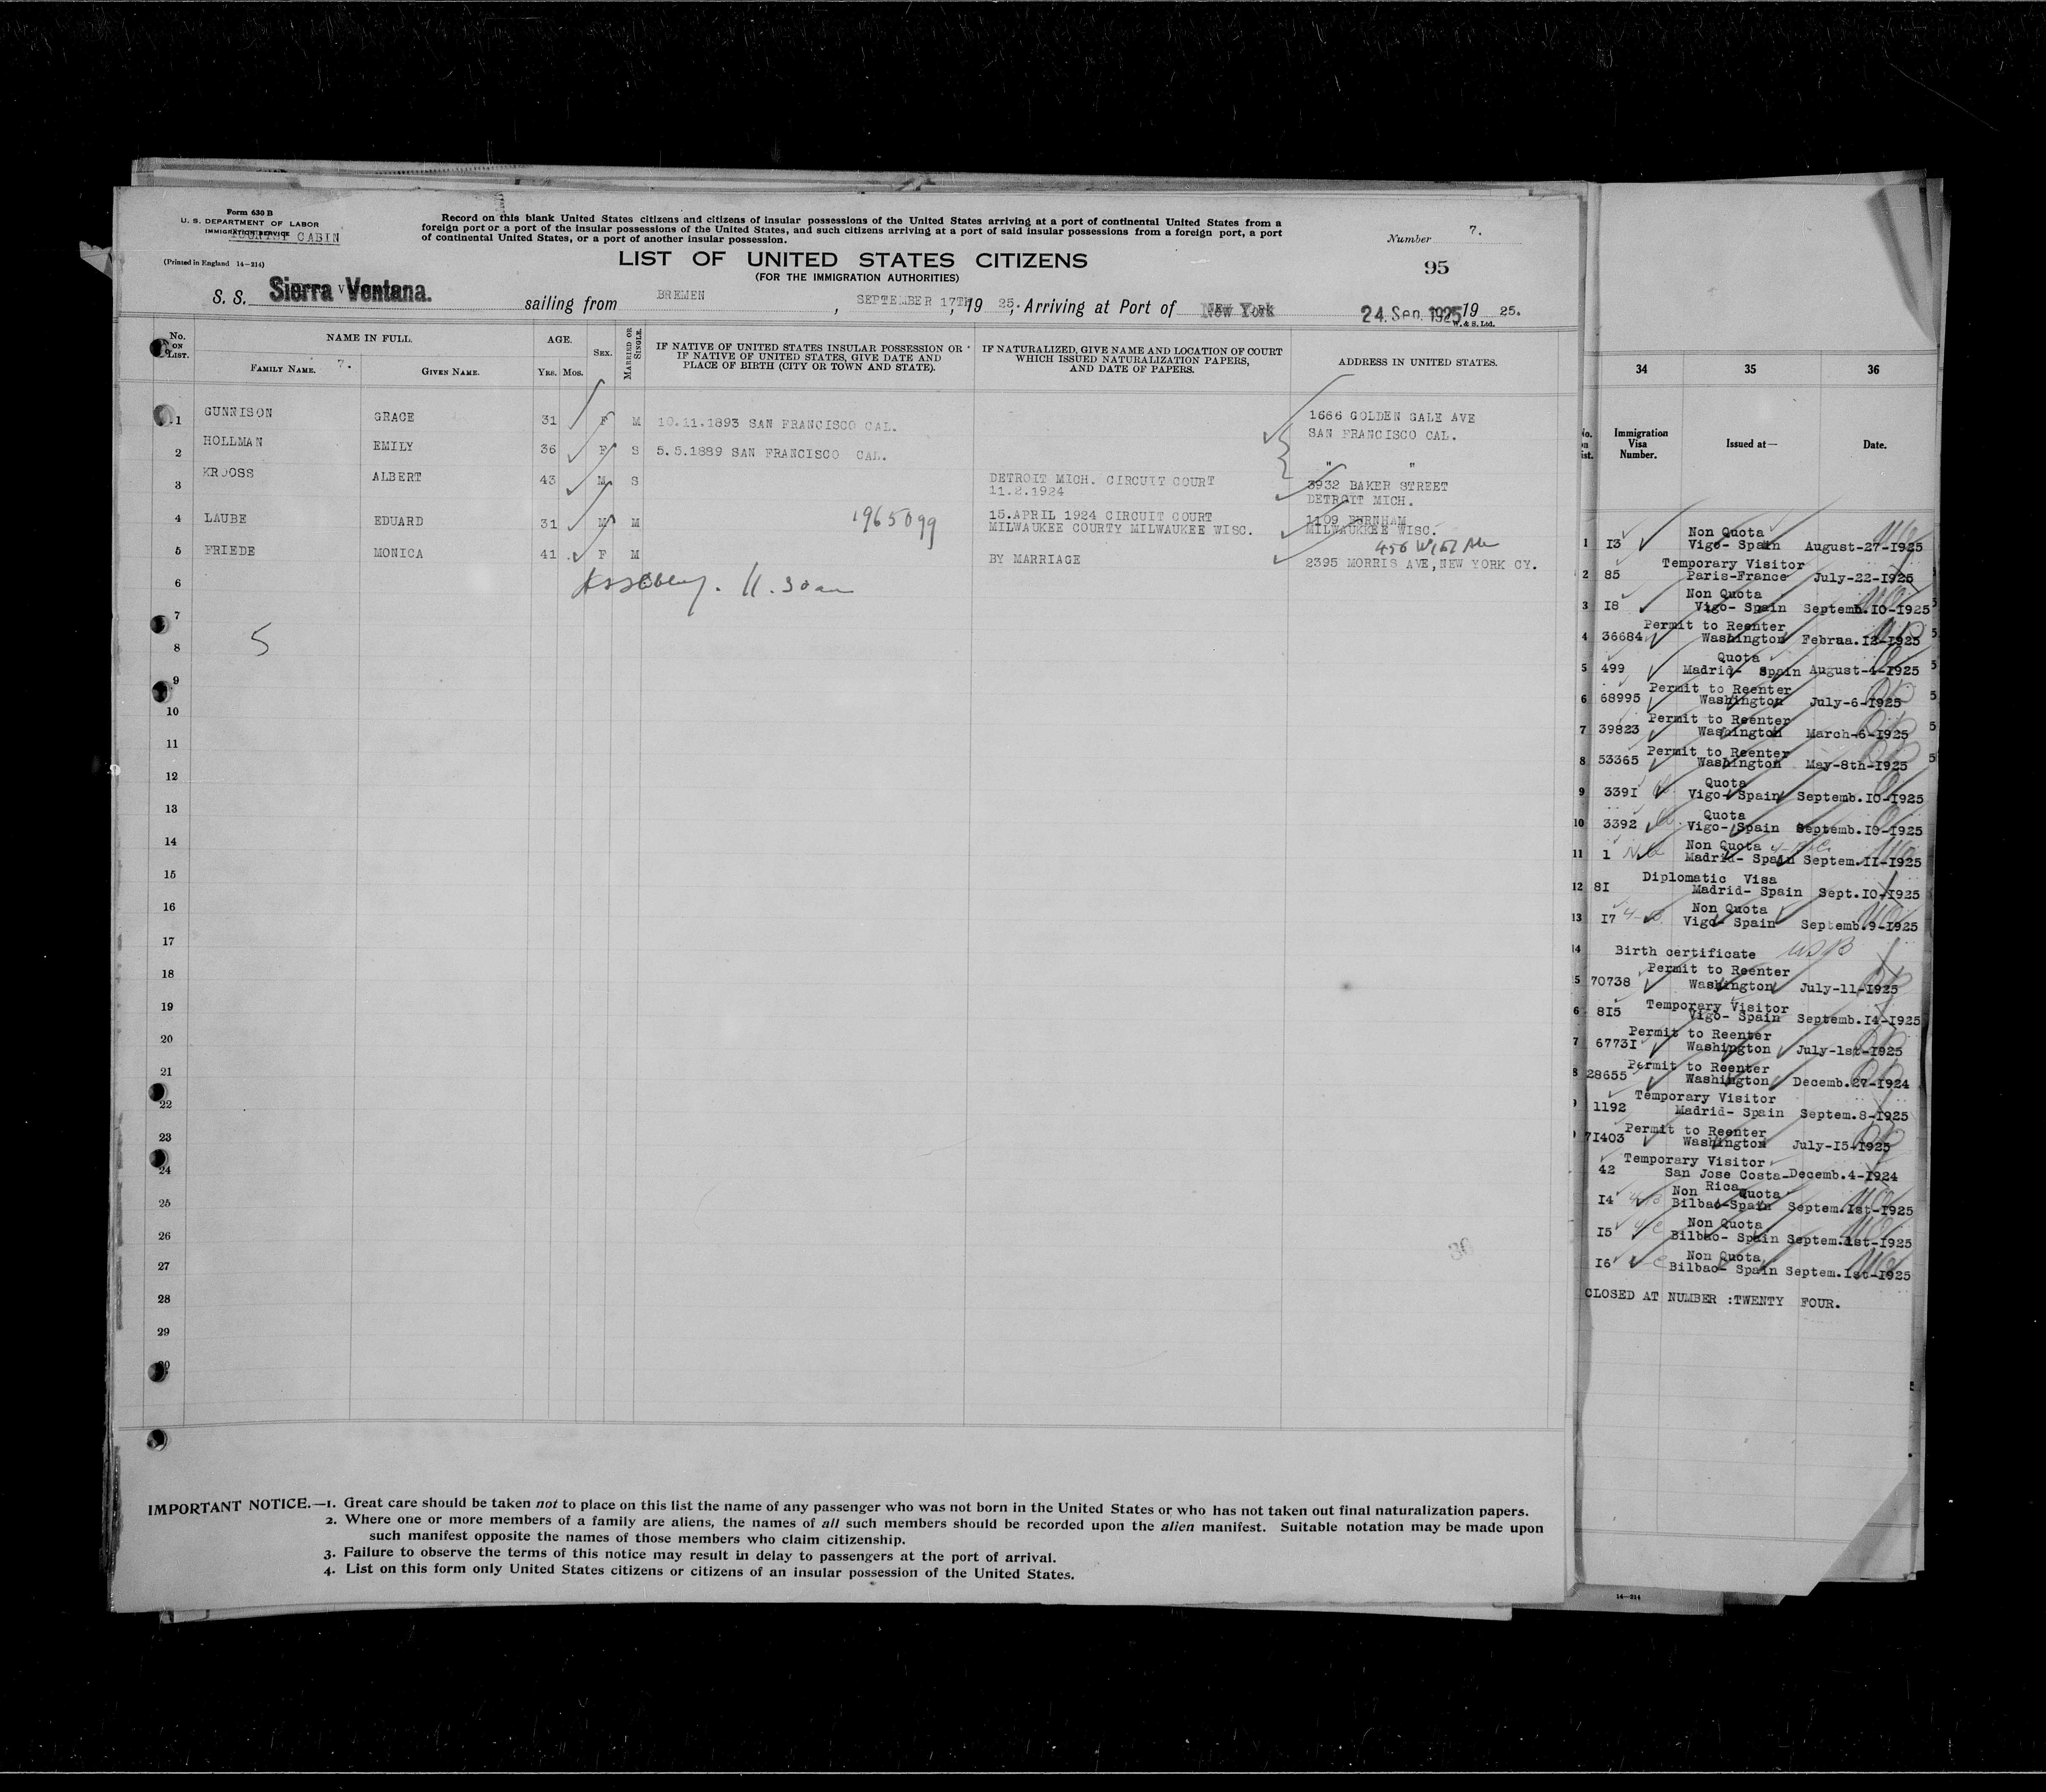 Form 630 B
U. S. DEPARTMENT OF LABOR
IMMIGRATION SERVICE
TOURIST CABIN
(Printed in England 14—214)
Record on this blank United States citizens and citizens of insular possessions of the United States arriving at a port of continental United States from a
foreign port or a port of the insular possessions of the United States, and such citizens arriving at a port of said insular possessions from a foreign port, a port
of continental United States, or a port of another insular possession.
Number 7.
95
LIST OF UNITED STATES CITIZENS
(FOR THE IMMIGRATION AUTHORITIES)
S. S. Sierra Ventana. sailing from BREMEN, SEPTEMBER 17TH, 19 25. Arriving at Port of New York 24. Sep. 1925 19 25.
W. & S. Ltd.
No. ON LIST. NAME IN FULL. AGE. SEX. MARRIED OR SINGLE. IF NATIVE OF UNITED STATES INSULAR POSSESSION OR IF NATIVE OF UNITED STATES, GIVE DATE AND PLACE OF BIRTH (CITY OR TOWN AND STATE). IF NATURALIZED, GIVE NAME AND LOCATION OF COURT WHICH ISSUED NATURALIZATION PAPERS, AND DATE OF PAPERS. ADDRESS IN UNITED STATES.
FAMILY NAME. 7. GIVEN NAME. YRS. MOS.
1 GUNNISON GRACE 31 F M 10.11.1893 SAN FRANCISCO CAL. 1666 GOLDEN GALE AVE
SAN FRANCISCO CAL.
2 HOLLMAN EMILY 36 F S 5.5.1889 SAN FRANCISCO CAL. " "
3 KROOSS ALBERT 43 M S DETROIT MICH. CIRCUIT COURT 3932 BAKER STREET
11.2.1924 DETROIT MICH.
4 LAUBE EDUARD 31 M M 1965099 15.APRIL 1924 CIRCUIT COURT 1109 BURNHAM
MILWAUKEE COURTY MILWAUKEE WISC. MILWAUKREE WISC.
5 FRIEDE MONICA 41 F M BY MARRIAGE 2395 MORRIS AVE,NEW YORK CY.
6
7
8 5
9
10
11
12
13
14
15
16
17
18
19
20
21
22
23
24
25
26
27
28
29
30
IMPORTANT NOTICE.—1. Great care should be taken not to place on this list the name of any passenger who was not born in the United States or who has not taken out final naturalization papers.
2. Where one or more members of a family are aliens, the names of all such members should be recorded upon the alien manifest. Suitable notation may be made upon
such manifest opposite the names of those members who claim citizenship.
3. Failure to observe the terms of this notice may result in delay to passengers at the port of arrival.
4. List on this form only United States citizens or citizens of an insular possession of the United States.
34 35 36
Immigration Visa Number. Issued at— Date.
Non Quota
1 I3 Vigo- Spain August-27-I925
Temporary Visitor
2 85 Paris-France July-22-I925
Non Quota
3 I8 Vigo- Spain Septemb.IO-I925
Permit to Reenter
4 36684 Washington Februa.I2-I925
Quota
5 499 Madrid- Spain August-4-I925
Permit to Reenter
6 68995 Washington July-6-I925
Permit to Reenter
7 39823 Washington March-6-I925
Permit to Reenter
8 53365 Washington May-8th-I925
Quota
9 339I Vigo- Spain Septemb.IO-I925
Quota
10 3392 Vigo- Spain Septemb.IO-I925
Non Quota
11 1 Madrid- Spain Septem.II-I925
Diplomatic Visa
12 8I Madrid- Spain Sept.IO-I925
Non Quota
13 I7 Vigo- Spain Septemb.9-I925
14 Birth certificate USB
Permit to Reenter
5 70738 Washington July-11-I925
Temporary Visitor
6 8I5 Vigo- Spain Septemb.I4-I925
Permit to Reenter
7 6773I Washington July-1st-I925
Permit to Reenter
8 28655 Washington Decemb.27-I924
Temporary Visitor
1192 Madrid- Spain Septem.8-I925
Permit to Reenter
7I403 Washington July-I5-I925
Temporary Visitor
42 San Jose Costa- Decemb.4-I924
Rica
Non Quota
I4 Bilbao-Spain Septem.Ist-I925
Non Quota
I5 Bilbao- Spain Septem.1st-I925
Non Quota
I6 Bilbao- Spain Septem.Ist-I925
CLOSED AT NUMBER :TWENTY FOUR.
14—214